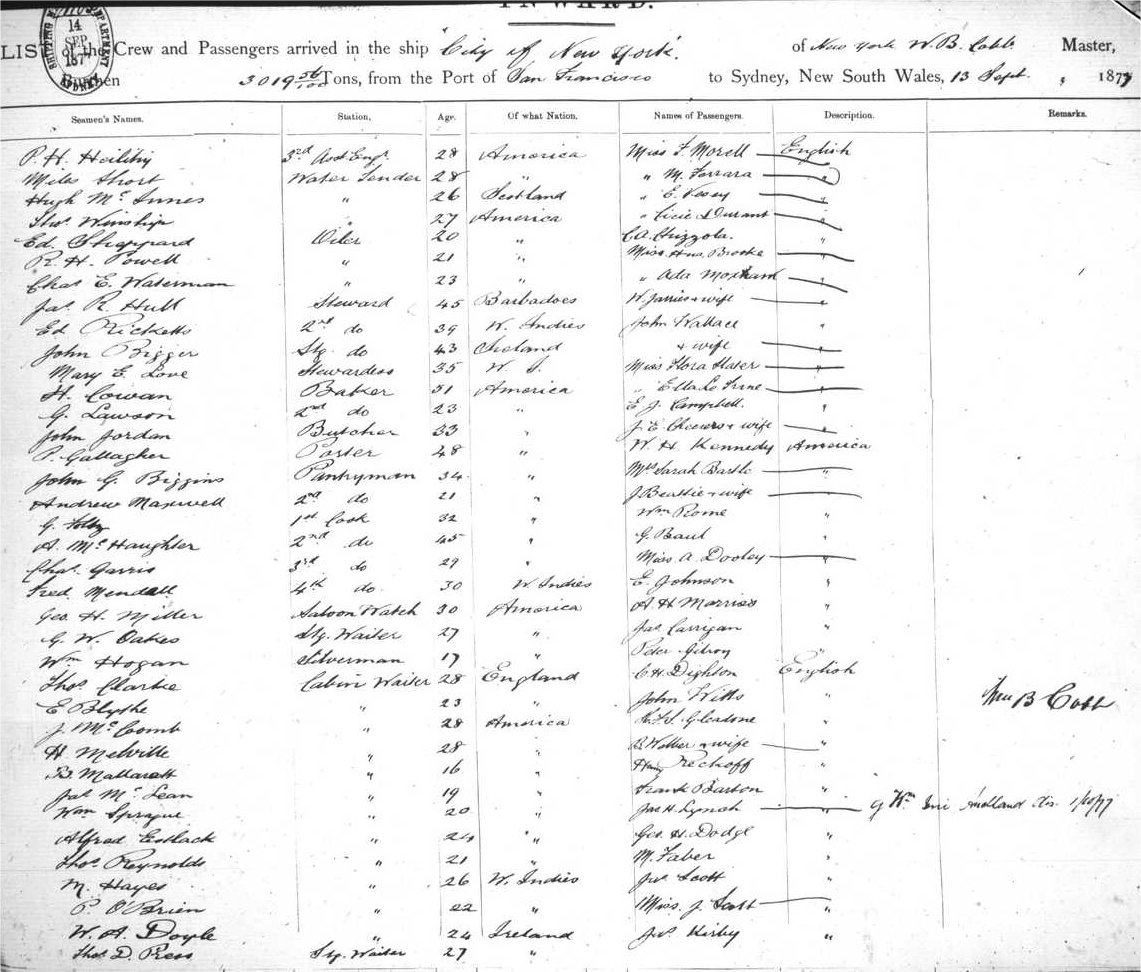 INWARD.
14 SEP 187
SHIPPING DEPARTMENT SYDNEY
LIST of the Crew and Passengers arrived in the ship "City of New York." of New York W. B. Cobb Master,
Burthen 3019 56/100 Tons, from the Port of San Francisco to Sydney, New South Wales, 13 Sept. 1877
Seamen's Names. Station, Age. Of what Nation. Names of Passengers. Description. Remarks.
P. H. 3rd Asst Engr 28 America Miss F. Morell English
Miles Short Water Tender 28 " " M. Ferrara "
Hugh McInnes " 26 Scotland " E. Vesey "
Thos. Winship " 27 America " "
Ed. Sheppard Oiler 20 " C.A. Chizzola. "
R. H. Powell " 21 " Miss Brooke "
Chas E. Waterman " 23 " " Ada Moxham "
Jas. R. Hull Steward 45 Barbadoes W. Jarries & wife "
Ed Ricketts 2nd do 39 W. Indies John Wallace "
John Bigger Stg. do 43 Ireland & wife "
Mary E. Love Stewardess 35 W. I. Miss Flora Slater "
H. Cowan Baker 51 America "
G. Lawson 2nd do 23 " E. J. Campbell. "
John Jordan Butcher 33 " J. E. Cheevers & wife "
P. Gallagher Porter 48 " W. H. Kennedy America
John G. Biggins Pantryman 34 " Mrs Sarah Bartle "
Andrew Maxwell 2nd do 21 " J Beattie & wife "
G. 1st Cook 32 " Wm Rome "
A. McHaughter 2nd do 45 " G. Baul "
Chas. Garris 3rd do 29 " Miss A. Dooley "
Fred Mendall 4th do 30 W. Indies E. Johnson "
Geo. H. Miller Saloon Watch 30 America A H Morriss "
G. W. Oakes Stg. Waiter 27 " Jas Carrigan "
Wm Hogan Silverman 17 " Peter Gilroy "
Thos. Clarke Cabin Waiter 28 England C. H. Dighton English
E Blythe " 23 " John Witts "
J. McComb " 28 America Gladstone "
H Melville " 28 " & wife "
" 16 " "
Jas McLean " 19 " Frank Barton "
Wm Sprague " 20 " Jas H. Lynch " 1/10/77
Alfred Estlack " 24 " Geo. H. Dodge "
Thos. Reynolds " 21 " M. Faber "
M. Hayes " 26 W. Indies Jno Scott "
P. O'Brien " 22 " Miss J. Scott "
W. A. Doyle " 24 Ireland Jno Kirby "
Thos. D. Press Stg. Waiter 27 "
Wm B Cobb